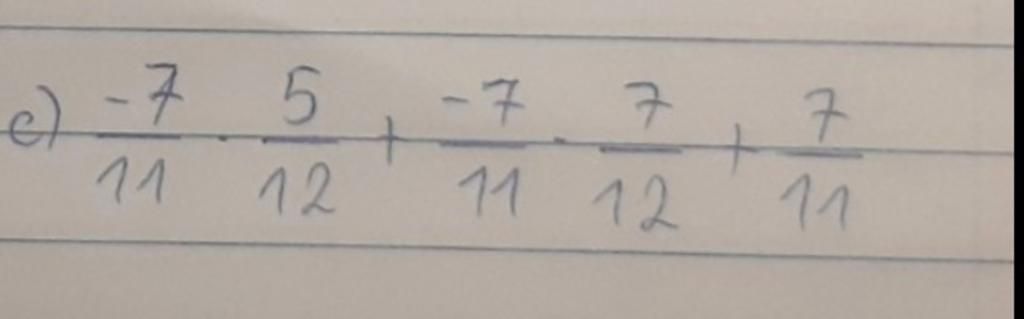 c) -7/11 · 5/12 + -7/11 · 7/12 + 7/11